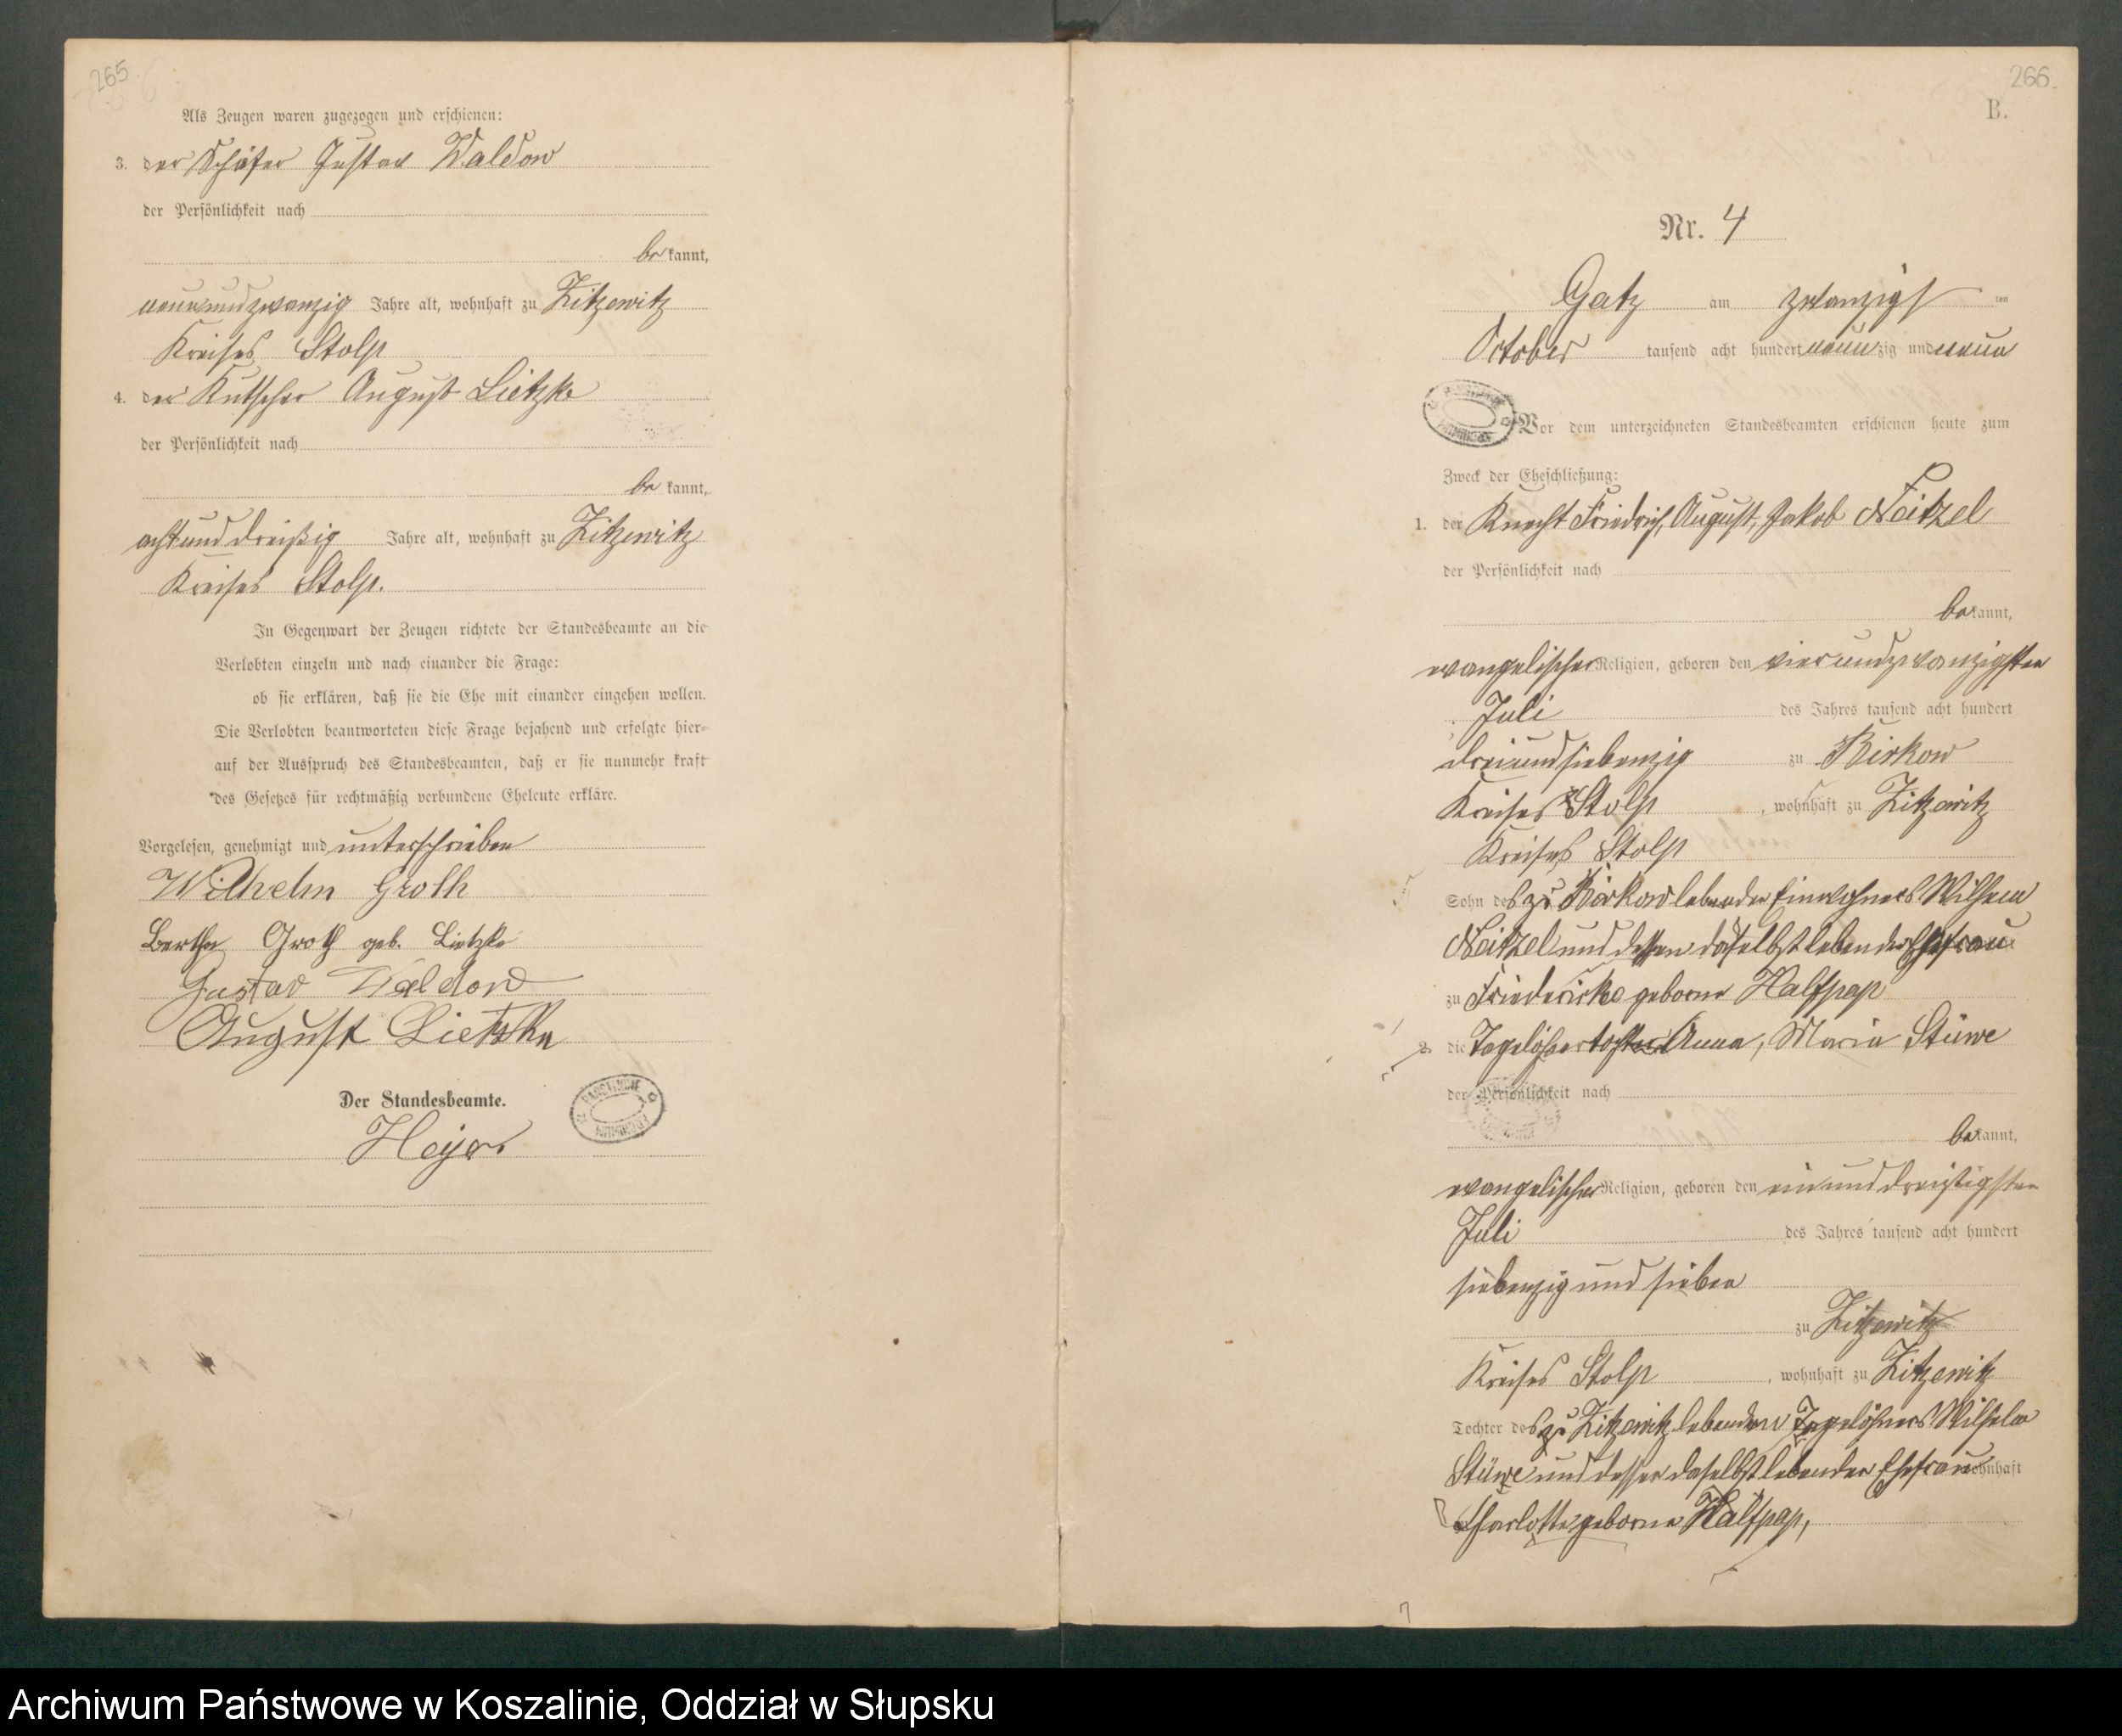 265
Als Zeugen waren zugezogen und erschienen:
3. der Schäfer Gustav Waldow
der Persönlichkeit nach
bekannt,
neunundzwanzig Jahre alt, wohnhaft zu Zitzewitz
Kreises Stolp
4. der Kutscher August Lietzke
der Persönlichkeit nach
bekannt,
achtunddreißig Jahre alt, wohnhaft zu Zitzewitz
Kreises Stolp.
In Gegenwart der Zeugen richtete der Standesbeamte an die
Verlobten einzeln und nach einander die Frage:
ob sie erklären, daß sie die Ehe mit einander eingehen wollen.
Die Verlobten beantworteten diese Frage bejahend und erfolgte hier-
auf der Ausspruch des Standesbeamten, daß er sie nunmehr kraft
des Gesetzes für rechtmäßig verbundene Eheleute erkläre.
Vorgelesen, genehmigt und unterschrieben
Wilhelm Groth
Bertha Groth geb. Lietzke
Gustav Waldow
August Lietzke
Der Standesbeamte.
Heyer
266.
B.
Nr. 4
Gatz am zwanzigsten
October tausend acht hundert neunzig und neun
Vor dem unterzeichneten Standesbeamten erschienen heute zum
Zweck der Eheschließung:
1. der Knecht Friedrich, August, Jakob Neitzel
der Persönlichkeit nach
bekannt,
evangelischer Religion, geboren den vierundzwanzigsten
Juli des Jahres tausend acht hundert
dreiundsiebenzig zu Birkow
Kreises Stolp, wohnhaft zu Zitzewitz
Kreises Stolp
Sohn des zu Birkow lebenden Einwohners Wilhelm
Neitzel und dessen daselbst lebender Ehefrau
zu Friedericke geborne Halfpap
2. die Tagelöhnertochter Anna, Maria Stüwe
der Persönlichkeit nach
bekannt,
evangelischer Religion, geboren den einunddreißigsten
Juli des Jahres tausend acht hundert
siebenzig und sieben
zu Zitzewitz
Kreises Stolp, wohnhaft zu Zitzewitz
Tochter des zu Zitzewitz lebenden Tagelöhners Wilhelm
Stüwe und dessen daselbst lebender Ehefrau wohnhaft
Charlotte geborne Halfpap,
Archiwum Państwowe w Koszalinie, Oddział w Słupsku